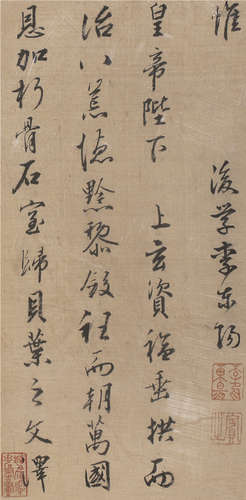 惟
後学李东陽
皇帝陛下 上玄資福垂拱而
治八荒德黔黎斂衽而朝萬國
恩加朽骨石室歸貝葉之文澤